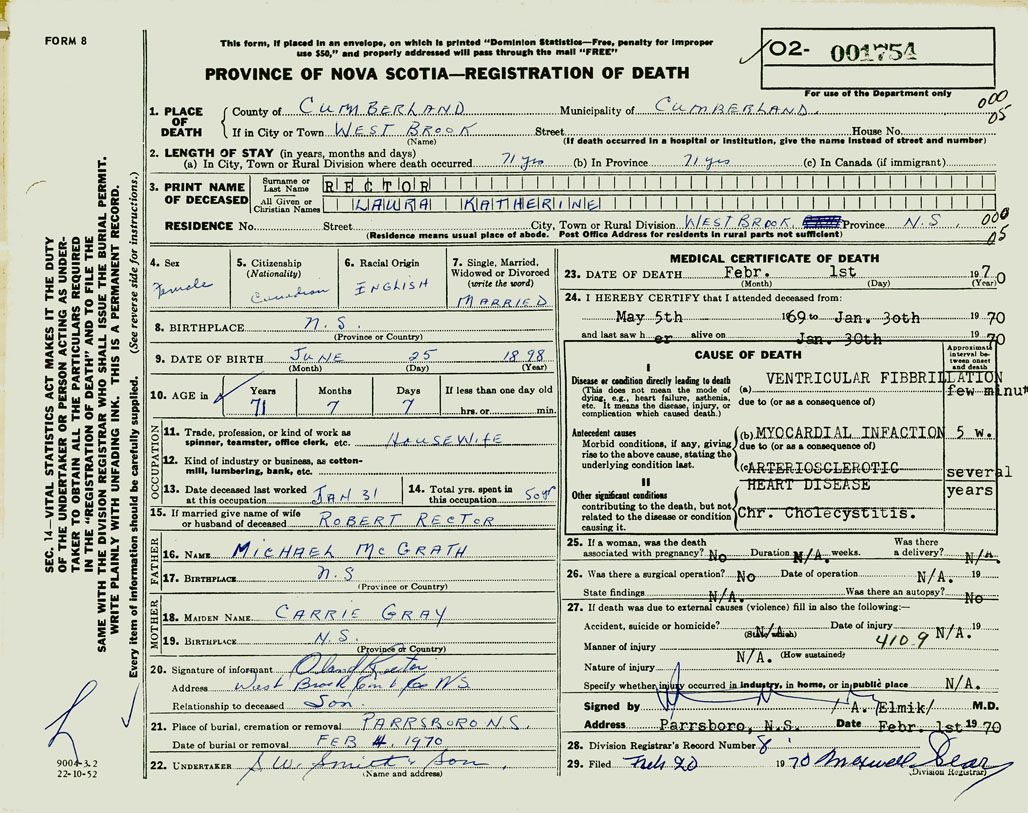 FORM 8
This form, if placed in an envelope, on which is printed "Dominion Statistics—Free, penalty for improper
use $50," and properly addressed will pass through the mail "FREE"
PROVINCE OF NOVA SCOTIA—REGISTRATION OF DEATH
02- 001754
For use of the Department only
000
05
1. PLACE OF DEATH
County of CUMBERLAND Municipality of CUMBERLAND.
If in City or Town WEST BROOK Street House No.
(Name) (If death occurred in a hospital or institution, give the name instead of street and number)
2. LENGTH OF STAY (in years, months and days)
(a) In City, Town or Rural Division where death occurred 71 yrs (b) In Province 71 yrs (c) In Canada (if immigrant)
3. PRINT NAME OF DECEASED
Surname or Last Name RECTOR
All Given or Christian Names LAURA KATHERINE
RESIDENCE No. Street City, Town or Rural Division WEST BROOK, Province N.S. 000
05
(Residence means usual place of abode. Post Office Address for residents in rural parts not sufficient)
4. Sex
Female
5. Citizenship
(Nationality)
Canadian
6. Racial Origin
ENGLISH
7. Single, Married,
Widowed or Divorced
(write the word)
MARRIED
8. BIRTHPLACE N.S.
(Province or Country)
9. DATE OF BIRTH JUNE 25 1898
(Month) (Day) (Year)
10. AGE in
Years Months Days If less than one day old
71 7 7 hrs. or min.
OCCUPATION
11. Trade, profession, or kind of work as
spinner, teamster, office clerk, etc. HOUSEWIFE
12. Kind of industry or business, as cotton-
mill, lumbering, bank, etc.
13. Date deceased last worked
at this occupation JAN 31
14. Total yrs. spent in
this occupation 50yr
15. If married give name of wife
or husband of deceased ROBERT RECTOR
FATHER
16. NAME MICHAEL McGRATH
17. BIRTHPLACE N.S
(Province or Country)
MOTHER
18. MAIDEN NAME CARRIE GRAY
19. BIRTHPLACE N.S.
(Province or Country)
20. Signature of informant Rector
Address West Brook Cumb Co N.S
Relationship to deceased Son
21. Place of burial, cremation or removal PARRSBORO N.S.
Date of burial or removal FEB 4, 1970
22. UNDERTAKER S.W. Smith & Son
(Name and address)
MEDICAL CERTIFICATE OF DEATH
23. DATE OF DEATH Febr. 1st 1970
(Month) (Day) (Year)
24. I HEREBY CERTIFY that I attended deceased from:
May 5th 1969 to Jan. 30th 1970
and last saw her alive on Jan. 30th 1970
CAUSE OF DEATH
Approximate
interval be-
tween onset
and death
I
Disease or condition directly leading to death
(This does not mean the mode of
dying, e.g., heart failure, asthenia,
etc. It means the disease, injury, or
complication which caused death.)
(a) VENTRICULAR FIBBRILLATION few minut
due to (or as a consequence of)
Antecedent causes
Morbid conditions, if any, giving
rise to the above cause, stating the
underlying condition last.
(b) MYOCARDIAL INFACTION 5 w.
due to (or as a consequence of)
(c) ARTERIOSCLEROTIC several
HEART DISEASE years
II
Other significant conditions
contributing to the death, but not
related to the disease or condition
causing it.
Chr. Cholecystitis.
25. If a woman, was the death
associated with pregnancy? No Duration N/A. weeks.
Was there
a delivery? N/A.
26. Was there a surgical operation? No Date of operation N/A. 19
State findings N/A. Was there an autopsy? No
27. If death was due to external causes (violence) fill in also the following:—
Accident, suicide or homicide? N/A. Date of injury N/A. 19
(State which)
Manner of injury N/A. (How sustained) 410.9
Nature of injury
Specify whether injury occurred in industry, in home, or in public place N/A.
Signed by /A. Elmik/ M.D.
Address Parrsboro, N.S. Date Febr. 1st 1970
28. Division Registrar's Record Number 8
29. Filed Feb 20 1970 Maxwell
(Division Registrar)
SEC. 14—VITAL STATISTICS ACT MAKES IT THE DUTY
OF THE UNDERTAKER OR PERSON ACTING AS UNDER-
TAKER TO OBTAIN ALL THE PARTICULARS REQUIRED
IN THE "REGISTRATION OF DEATH" AND TO FILE THE
SAME WITH THE DIVISION REGISTRAR WHO SHALL ISSUE THE BURIAL PERMIT.
WRITE PLAINLY WITH UNFADING INK. THIS IS A PERMANENT RECORD.
Every item of information should be carefully supplied. (See reverse side for instructions.)
9004-3.2
22-10-52